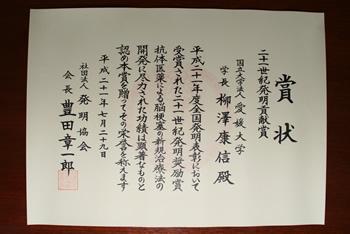 賞状
二十一世紀発明貢献賞
国立大学法人 愛媛大学
学長 柳澤康信殿
平成二十一年度全国発明表彰において
受賞された二十一世紀発明奨励賞
抗体医薬による脳梗塞の新規治療法の
開発に尽力された功績は顕著なものと
認め本賞を贈ってその栄誉を称えます
平成二十一年七月二十九日
社団法人 発明協会
会長 豊田章一郎